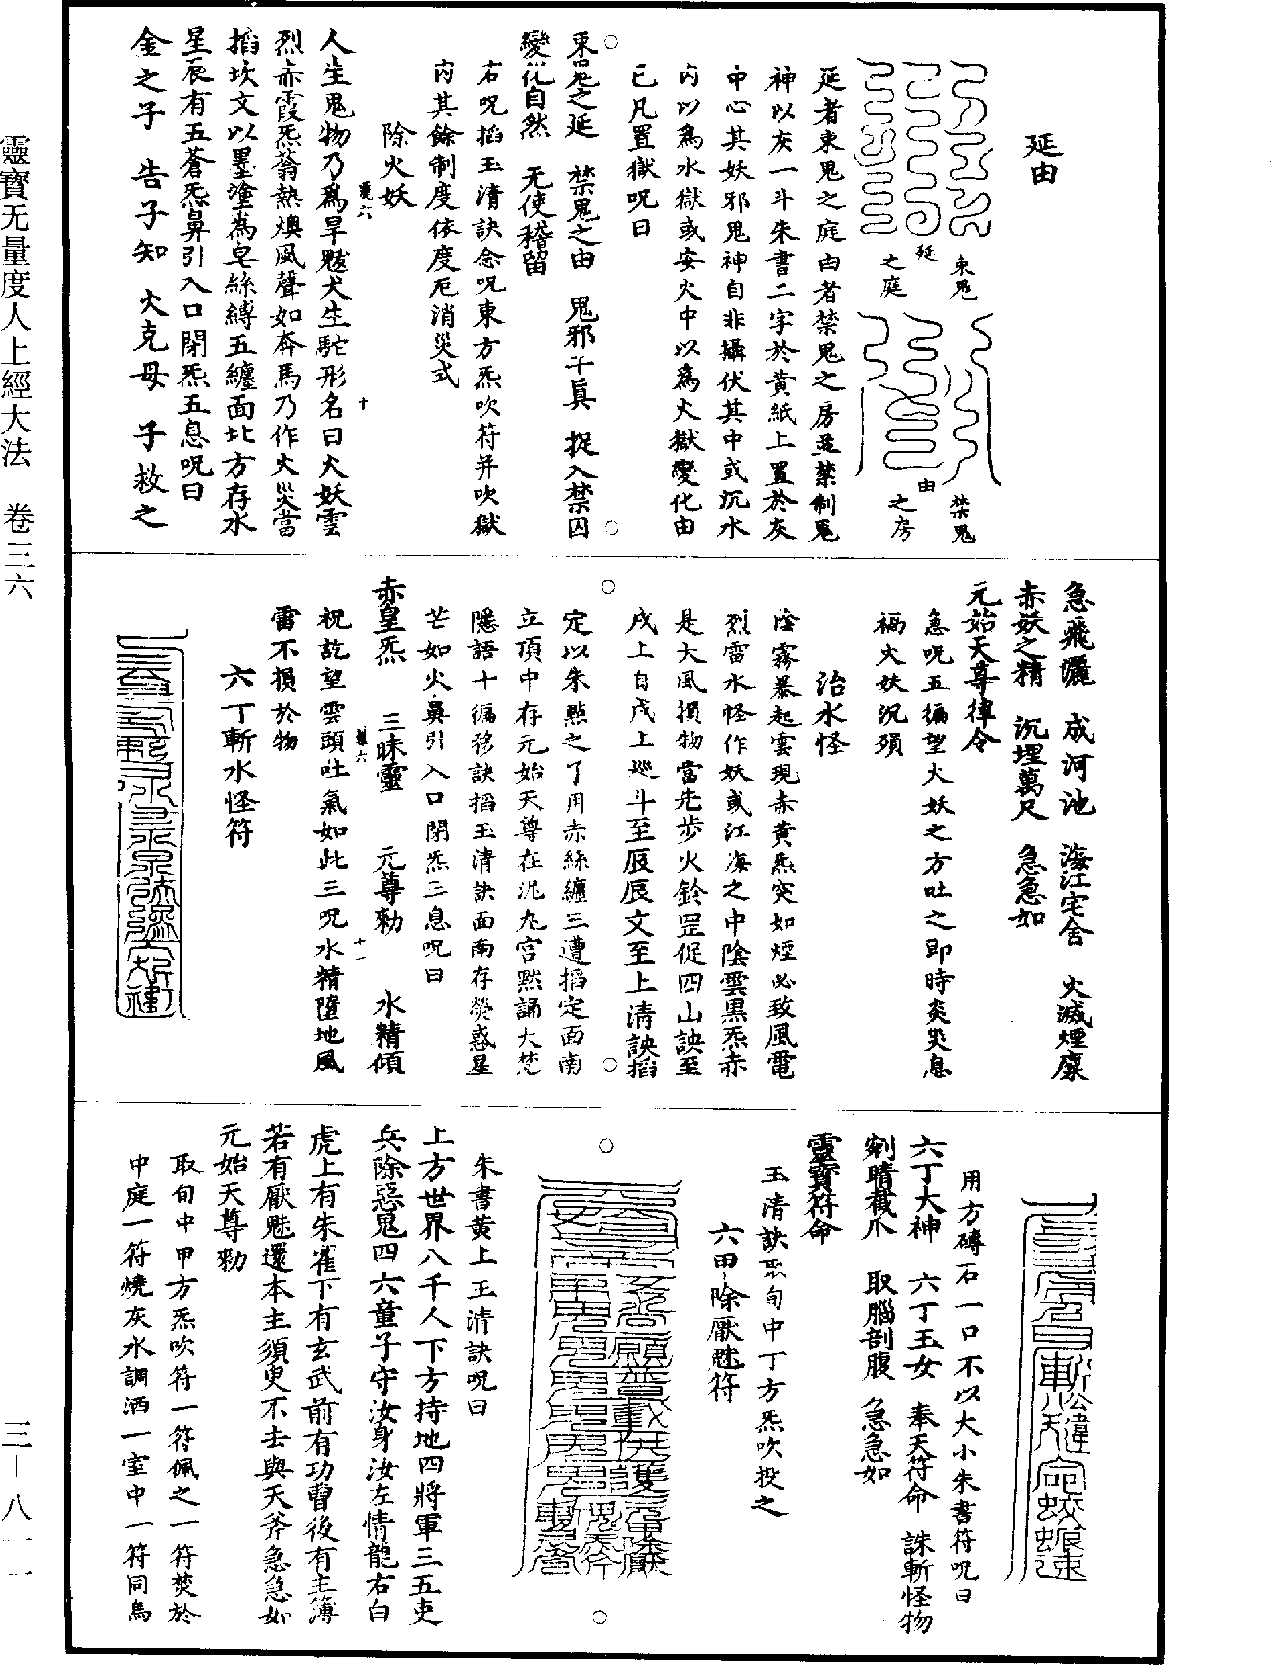 延由
束鬼
延
之庭
禁鬼
由
之房
延者束鬼之庭由者禁鬼之房蓋禁制鬼
神以灰一斗朱書二字於黃紙上置於灰
中心其妖邪鬼神自非攝伏其中或沉水
內以為水獄或安火中以為火獄變化由
已凡置獄呪曰
束鬼之延　禁鬼之由　鬼邪干眞　捉入禁囚
變化自然　无使稽留
右呪掐玉清訣念呪東方炁吹符并吹獄
內其餘制度依度厄消災式
除火妖
人生鬼物乃為旱魃犬生駝形名曰火妖雲
烈赤霞炁蓊熱燠風聲如奔馬乃作火災當
掐坎文以墨塗為皂絲縛五纏面北方存水
星辰有五蒼炁鼻引入口閉炁五息呪曰
金之子　告子知　火克母　子救之
急飛灑　成河池　海江宅舍　火滅煙糜
赤妖之精　沉埋萬尺　急急如
元始天尊律令
急呪五徧望火妖之方吐之即時炎災息
禍火妖沉殞
治水怪
陰霧暴起雲現赤黃炁突如煙必致風電
烈雷水怪作妖或江海之中陰雲黑炁赤
是大風損物當先步火鈴罡促四山訣至
戌上自戌上巡斗至辰辰文至上清訣掐
定以朱點之了用赤絲纏三遭掐定面南
立頂中存元始天尊在泥丸宮默誦大梵
隱語十徧移訣掐玉清訣面南存熒惑星
芒如火鼻引入口閉炁三息呪曰
赤皇炁　三昧靈　元尊勑　水精傾
祝訖望雲頭吐氣如此三呪水精墮地風
雷不損於物
六丁斬水怪符
用方磚石一口不以大小朱書符呪曰
六丁大神　六丁玉女　奉天符命　誅斬怪物
剜睛截爪　取腦剖腹　急急如
靈寶符命
玉清訣取旬中丁方炁吹投之
六甲除厭魅符
朱書黃上玉清訣呪曰
上方世界八千人下方持地四將軍三五吏
兵除惡鬼四六童子守汝身汝左情龍右白
虎上有朱雀下有玄武前有功曹後有主簿
若有厭魅還本主須臾不去與天斧急急如
元始天尊勑
取旬中甲方炁吹符一符佩之一符焚於
中庭一符燒灰水調洒一室中一符同烏
靈寶无量度人上經大法　卷三六
三－八一一